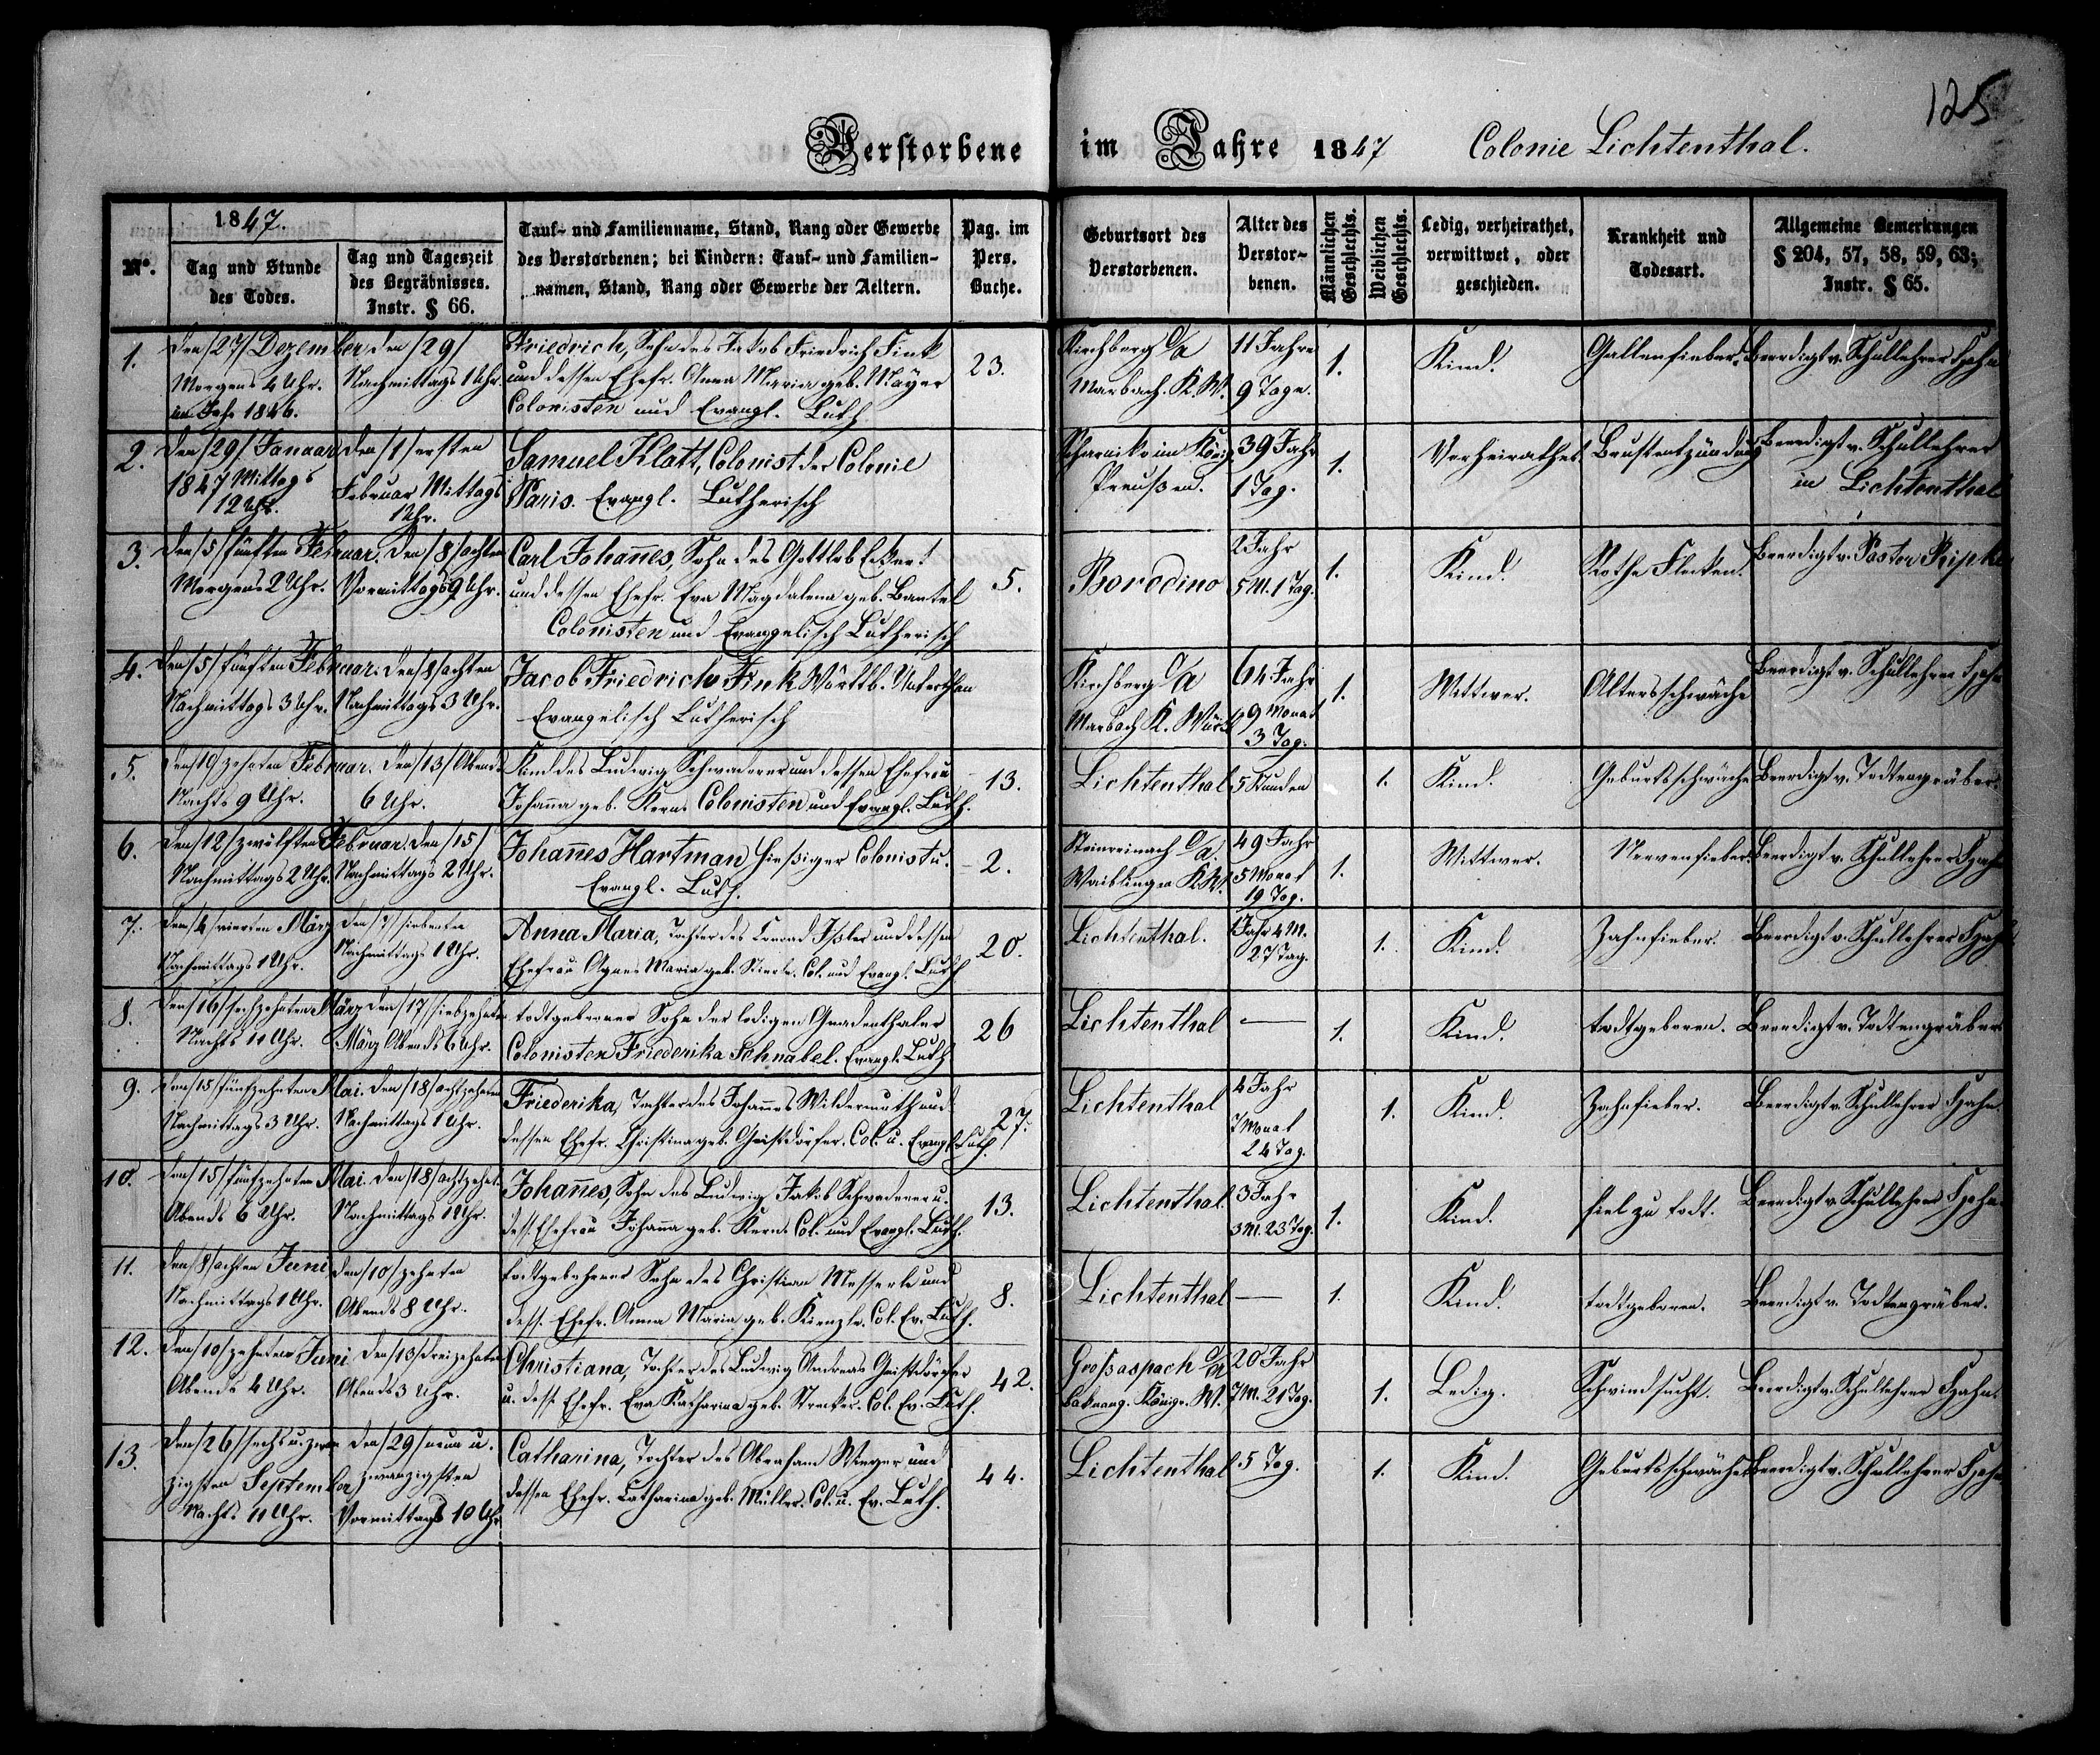 125
Verstorbene im Jahre 1847 Colonie Lichtenthal.
No.
1847.
Tag und Stunde
des Todes.
Tag und Tageszeit
des Begräbnisses.
Instr. § 66.
Tauf- und Familienname, Stand, Rang oder Gewerbe
des Verstorbenen; bei Kindern: Tauf- und Familien-
namen, Stand, Rang oder Gewerbe der Aeltern.
Pag. im
Pers.
Buche.
Geburtsort des
Verstorbenen.
Alter des
Verstor-
benen.
Männlichen
Geschlechts.
Weiblichen
Geschlechts.
Ledig, verheirathet,
verwittwet, oder
geschieden.
Krankheit und
Todesart.
Allgemeine Bemerkungen
§ 204, 57, 58, 59, 63;
Instr. § 65.
1.
den /27/ Dezember
Morgens 4 Uhr.
im Jahr 1846.
den /29/
Nachmittags 1 Uhr.
Friedrich, Sohn des Jakob Friedrich Fink
und dessen Ehefr. Anna Maria geb. Mayer
Colonisten und Evangl. Luth.
23.
Kirchberg O/A
Marbach. K. W.
11 Jahre
9 Tage.
1.
Kind.
Gallenfieber.
Beerdigt v. Schullehrer Hahn
2.
den /29/ Januar
1847 Mittags
12 Uhr.
den /1/ ersten
Februar Mittags
1 Uhr.
Samuel Klatt, Colonist der Colonie
Paris. Evangl. Lutherisch
im König.
Preußen.
39 Jahr
1 Tag.
1.
Verheirathet.
Brustentzündung
Beerdigt v. Schullehrer
in Lichtenthal
3.
den /5/ fünften Februar.
Morgens 2 Uhr.
den /8/ achten
Vormittags 9 Uhr.
Carl Johannes, Sohn des Gottlob Eckert
und dessen Ehefr. Eva Magdalena geb. Bantel
Colonisten und Evangelisch Lutherisch
5.
Borodino
2 Jahr
5 M. 1 Tag.
1.
Kind.
Rothe Flecken.
Beerdigt v. Pastor Pipke
4.
den /5/ fünften Februar.
Nachmittags 3 Uhr.
den /8/ achten
Nachmittags 3 Uhr.
Jacob Friedrich Fink Württb. Unterthan
Evangelisch Lutherisch
Kirchberg O/A
Marbach K. Würt.
64 Jahr
9 Monat
3 Tag.
1.
Wittwer.
Altersschwäche
Beerdigt v. Schullehrer Hahn
5.
den /10/ zehnten Februar.
Nachts 9 Uhr.
den /13/ Abends
6 Uhr.
Kind des Ludwig Schwaderer und dessen Ehefrau
Johanna geb. Kern. Colonisten und Evangl. Luth.
13.
Lichtenthal
5 Stunden
1.
Kind.
Geburtsschwäche
Beerdigt v. Todtengräber.
6.
den /12/ zwölften Februar.
Nachmittags 2 Uhr.
den /15/
Nachmittags 2 Uhr.
Johannes Hartman hiesiger Colonist u.
Evangl. Luth.
2.
Steinreinach O/A.
Waiblingen K. W.
49 Jahr
5 Monat
19 Tag.
1.
Wittwer.
Nervenfieber.
Beerdigt v. Schullehrer Hahn
7.
den /4/ vierten März
Nachmittags 1 Uhr.
den /7/ siebenten
Nachmittags 1 Uhr.
Anna Maria, Tochter des Konrad Ißler und dessen
Ehefrau Agnes Maria geb. Stierle. Col. und Evangl. Luth.
20.
Lichtenthal.
1 Jahr 4 M.
27 Tag.
1.
Kind.
Zahnfieber.
Beerdigt v. Schullehrer Hahn
8.
den /16/ sechzehnten März
Nachts 11 Uhr.
den /17/ siebzehnten
März Abends 6 Uhr.
todtgeborner Sohn der ledigen Gnadenthaler
Colonisten Friederika Schnabel. Evangl. Luth
26
Lichtenthal
—
1.
Kind.
todtgeboren.
Beerdigt v. Todtengräber
9.
den /15/ fünfzehnten Mai.
Nachmittags 3 Uhr.
den /18/ achtzehnten
Nachmittags 1 Uhr.
Friederika, Tochter des Johannes Wildermuth und
dessen Ehefr. Christina geb. Geistdörfer. Col. u. Evangl. Luth.
27.
Lichtenthal
4 Jahr
7 Monat
24 Tag.
1.
Kind.
Zahnfieber.
Beerdigt v. Schullehrer Hahn.
10.
den /15/ fünfzehnten Mai.
Abends 6 Uhr.
den /18/ achtzehnt.
Nachmittags 1 Uhr.
Johannes, Sohn des Ludwig Jakob Schwaderer u.
dess. Ehefrau Johanna geb. Kern. Col. und Evangl. Luth.
13.
Lichtenthal.
3 Jahr
3 M. 23 Tag.
1.
Kind.
fiel zu todt.
Beerdigt v. Schullehrer Hahn.
11.
den /8/ achten Juni
Nachmittags 1 Uhr.
den /10/ zehnten
Abends 8 Uhr.
todtgebohrner Sohn des Christian Messerle und
dess. Ehefr. Anna Maria geb. Kienzle. Col. Ev. Luth.
8.
Lichtenthal
—
1.
Kind.
todtgeboren.
Beerdigt v. Todtengräber.
12.
den /10/ zehnten Juni
Abends 4 Uhr.
den /13/ dreizehnten
Abends 3 Uhr.
Christiana, Tochter des Ludwig Andreas Geistdörfer
u. dess. Ehefr. Eva Katharina geb. Strecker. Col. Ev. Luth.
42.
Großaspach O/A
Baknang. Königr. W.
20 Jahr
7 M. 21 Tag.
1.
Ledig.
Schwindsucht.
Beerdigt v. Schullehrer Hahn.
13.
den /26/ sechs u. zwan
zigsten September
Nachts 11 Uhr.
den /29/ neun u.
zwanzigsten
Vormittags 10 Uhr
Catharina, Tochter des Abraham Weger und
dessen Ehefr. Catharina geb. Müller. Col. u. Ev. Luth.
44.
Lichtenthal
5 Tag.
1.
Kind.
Geburtsschwäche
Beerdigt v. Schullehrer Hahn